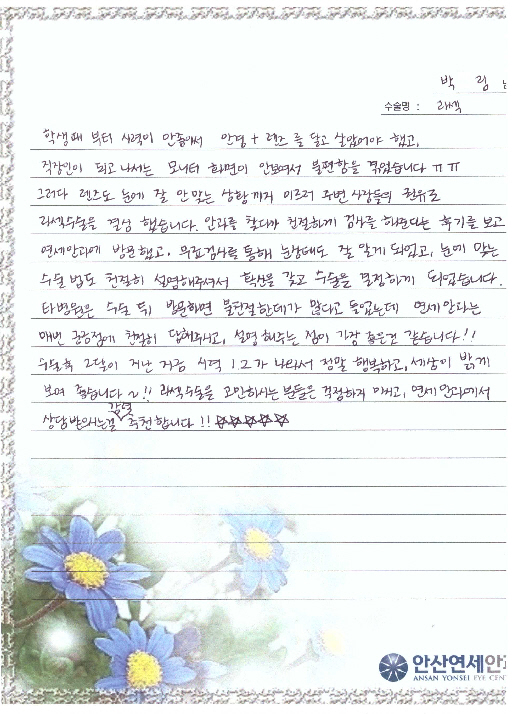 박 림 님
수술명 : 라섹
학생때 부터 시력이 안좋아서 안경 + 렌즈 를 달고 살았어야 했고,
직장인이 되고 나서는 모니터 화면이 안보여서 불편함을 겪었습니다 ㅠㅠ
그러다 렌즈도 눈에 잘 안맞는 상황까지 이르러 주변 사람들의 권유로
라섹수술을 결심 했습니다. 안과를 찾다가 친절하게 검사를 해준다는 후기를 보고
연세안과에 방문했고, 무료검사를 통해 눈상태도 잘 알게 되었고, 눈에 맞는
수술 법도 친절히 설명해주셔서 확신을 갖고 수술을 결정하게 되었습니다.
타병원은 수술 뒤 방문하면 불친절한데가 많다고 들었는데 연세안과는
매번 궁금점에 친절히 답해주시고, 설명 해주는 점이 가장 좋은것 같습니다!!
수술후 2달이 지난 지금 시력 1.2가 나와서 정말 행복하고, 세상이 밝게
보여 좋습니다~!! 라섹수술을 고민하시는 분들은 걱정하지 마시고, 연세안과에서
상담받아보는걸 강력 추천합니다!! ☆☆☆☆☆
안산연세안과
ANSAN YONSEI EYE CENT